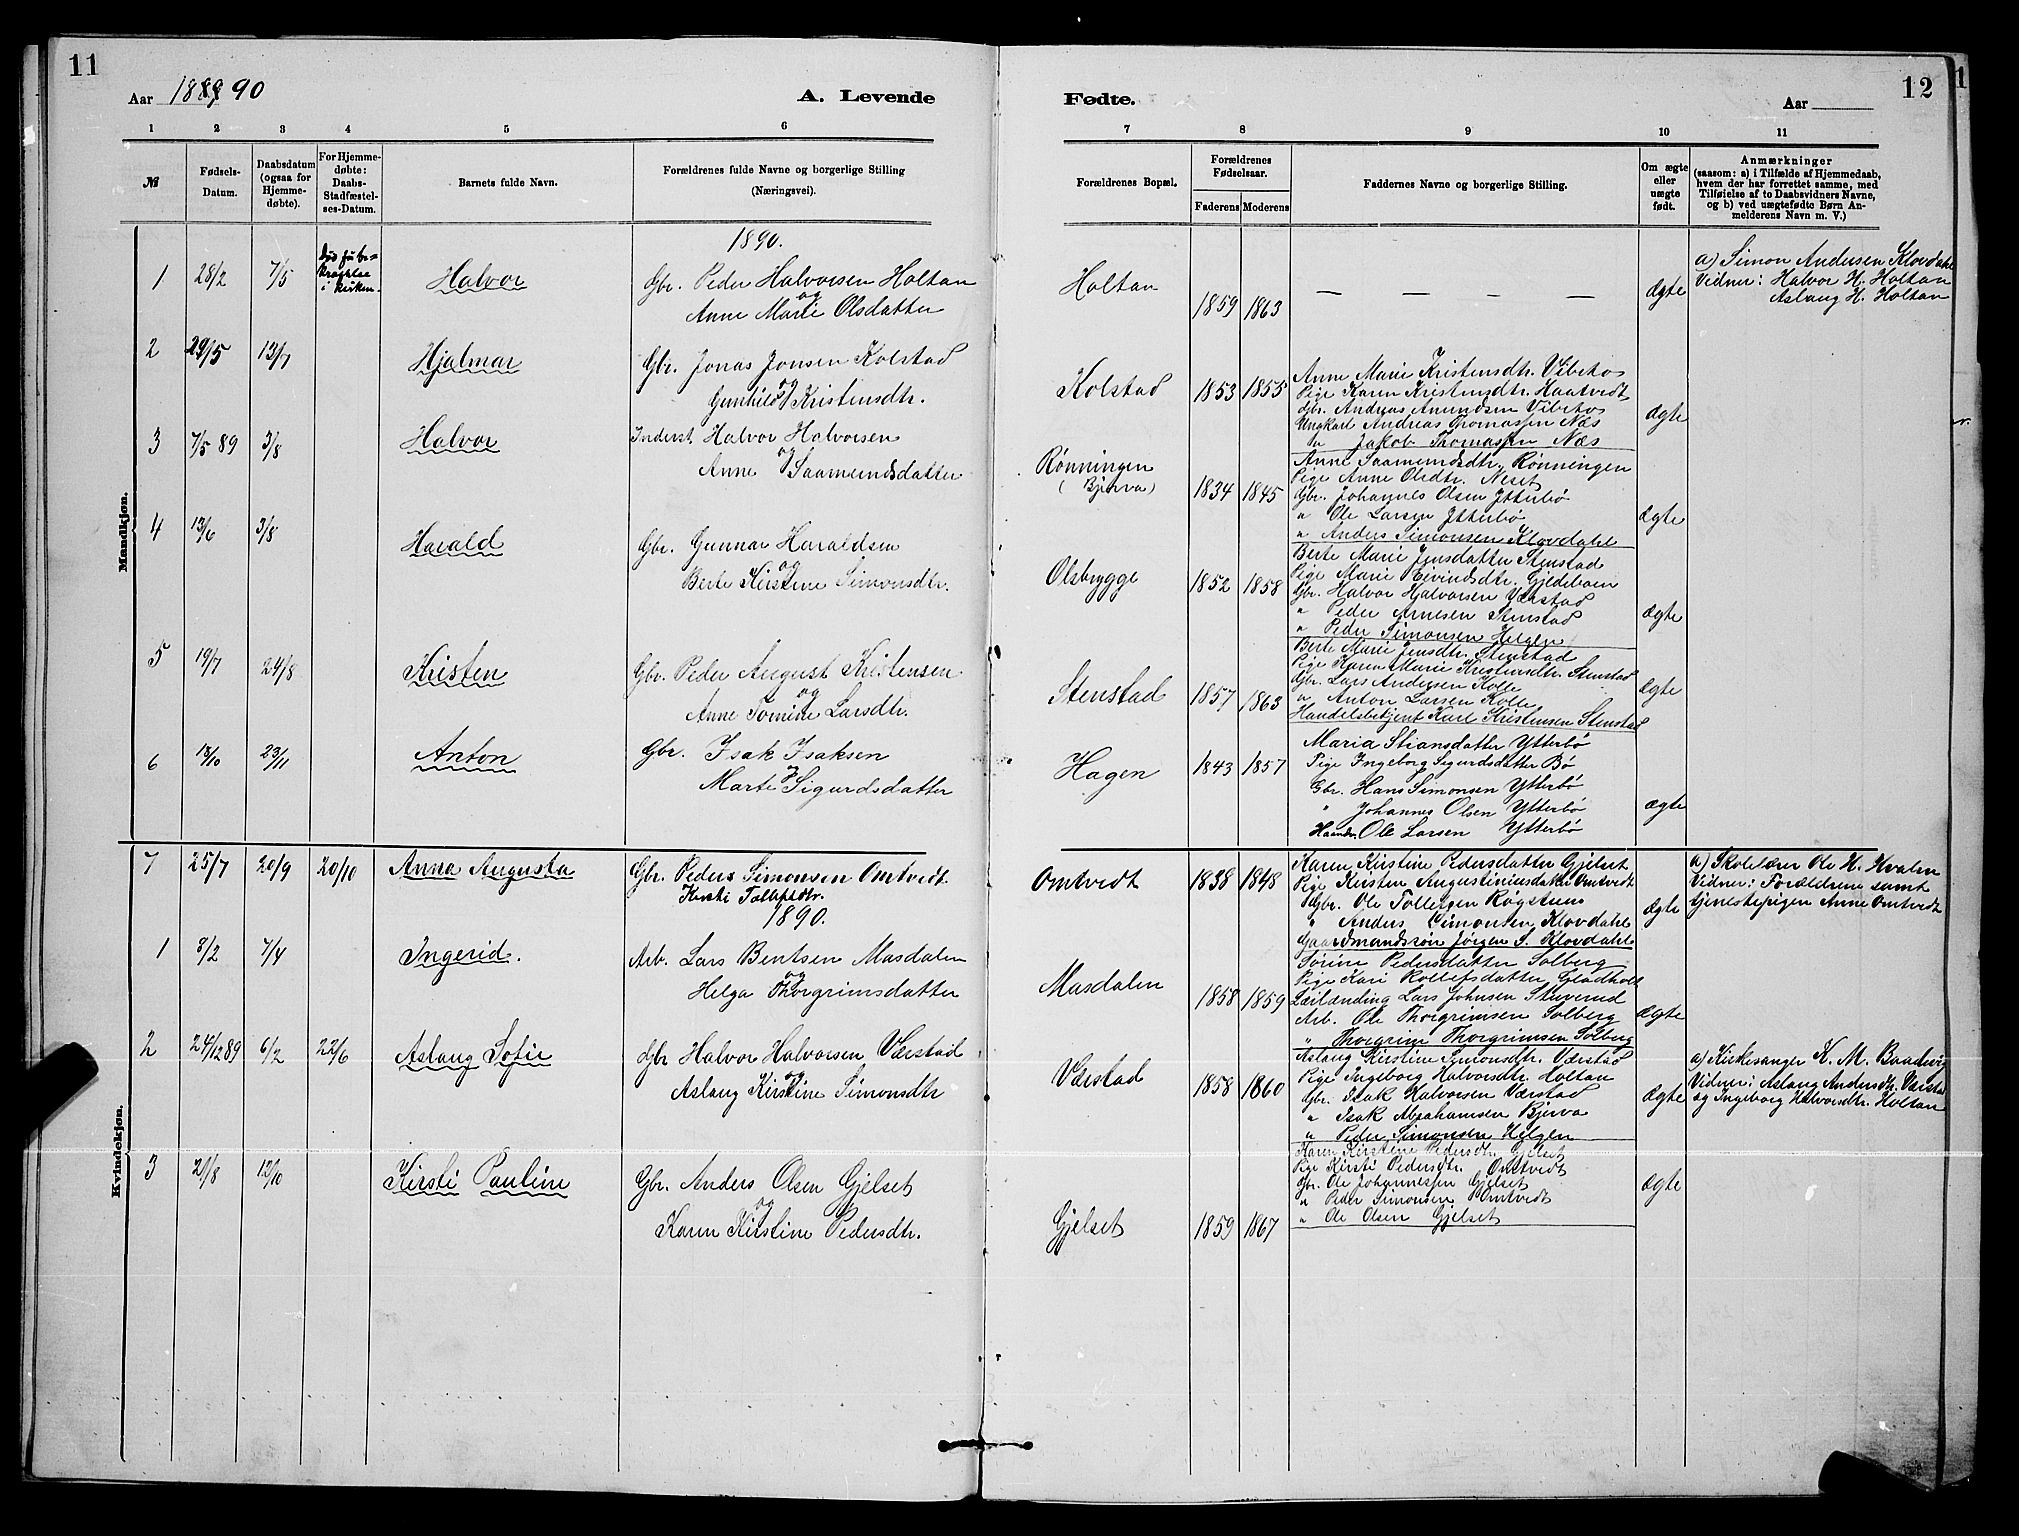 11
12
Aar 1889 90
A. Levende
Fødte.
Aar
1 2 3 4 5 6 7 8 9 10 11
№
Fødsels-
Datum.
Daabsdatum
(ogsaa for
Hjemme-
døbte).
For Hjemme-
døbte:
Daabs-
Stadfæstel-
ses-Datum.
Barnets fulde Navn.
Forældrenes fulde Navne og borgerlige Stilling
(Næringsvei).
Forældrenes Bopæl.
Forældrenes
Fødselsaar.
Faderens Moderens
Faddernes Navne og borgerlige Stilling.
Om ægte
eller
uægte
født.
Anmærkninger
(saasom: a) i Tilfælde af Hjemmedaab,
hvem der har forrettet samme, med
Tilføielse af to Daabsvidners Navne,
og b) ved uægtefødte Børn An-
melderens Navn m. V.)
Mandkjøn.
1890.
1 28/2 7/5
i kirken.
Halvor
Gbr. Peder Halvorsen Holtan
og
Anne Marie Olsdatter
Holtan
1859 1863
— — — —
Ægte
a) Simon Andersen Klovdahl
Vidner: Halvor H. Holtan
Aslaug H. Holtan
2 29/5 13/7
Hjalmar
Gbr. Jonas Jonsen Kolstad
og
Gunhild Kristensdtr.
Kolstad
1853 1855
Anne Marie Kristensdtr. Vibetos
Pige Karen Kristensdtr. Haatvedt
Gbr. Andreas Amundsen Vibetos
Ungkarl Andreas Thomassen Næs
" Jakob Thomassen Næs
Ægte
3 7/5 89 3/8
Halvor
Inderst. Halvor Halvorsen
og
Anne Saamundsdatter
Rønningen
(Bjerva)
1834 1845
Anne Saamundsdtr. Rønningen
Pige Anne Olsdtr. Neset
Gbr. Johannes Olsen Ytterbø
" Ole Larsen Ytterbø
" Anders Simonsen Klovdahl
Ægte
4 13/6 3/8
Harald
Gbr. Gunnar Haraldsen
og
Berte Kirstine Simonsdtr.
Olsbrygge
1852 1858
Berte Marie Jensdatter Stenstad
Pige Marie Eivindsdtr. Gjeldebaen
Gbr. Halvor Halvorsen Værstad
" Peder Arnesen Stenstad
" Peder Simonsen Helgen
Ægte
5 19/7 24/8
Kristen
Gbr. Peder August Kristensen
og
Anne Tomine Larsdtr.
Stenstad
1857 1863
Berte Marie Jensdtr. Stenstad
Pige Karen Marie Kristensdtr. Stenstad
Gbr. Lars Andersen Kolle
" Anton Larsen Kolle
Handelsbetjent Karl Kristensen Stenstad
Ægte
6 18/10 23/11
Anton
Gbr. Isak Isaksen
og
Marte Sigurdsdatter
Hagen
1843 1857
Maria Stiansdatter Ytterbø
Pige Ingeborg Sigurdsdatter Bø
Gbr. Hans Simonsen Ytterbø
" Johannes Olsen Ytterbø
Haandv. Ole Larsen Ytterbø
ægte
Kvindekjøn.
7 25/7 20/9 20/10
Anna Augusta
Gbr. Peder Simonsen Omtvedt
Kirsti Tollefsdtr.
Omtvedt
1838 1848
Karen Kirstine Pedersdatter Gjelset
Pige Kirsten Augustiniusdatter Omtvedt
Gbr. Ole Tollefsen Rogstuen
" Anders Simonsen Klovdahl
Gaardmandssøn Jørgen S. Klovdahl
Ægte
a) Skolelærer Ole H. Hvalen
Vidner: Forældrene samt
tjenestepigen Anne Omtvedt
1890.
1 8/2 7/4
Ingerid.
Arb. Lars Bentsen Masdalen
og
Helga Thorgrimsdatter
Masdalen
1858 1859
Sørine Pedersdatter Solberg
Pige Kari Rollefsdatter Gladhold
Leilænding Lars Johnsen Stuverud
Arb. Ole Thorgrimsen Solberg
" Thorgrim Thorgrimsen Solberg
Ægte
2 24/12 89 6/2 22/6
Aslaug Sofie
Gbr Halvor Halvorsen Værstad
og
Aslaug Kirstine Simonsdtr
Værstad
1858 1860
Aslaug Kirstine Simonsdtr. Værstad
Pige Ingeborg Halvorsdtr. Holtan
Gbr. Isak Halvorsen Værstad
" Isak Abrahamsen Bjerva
" Peder Simonsen Helgen
Ægte
a) Kirkesanger K. M. Baadsvig
Vidner: Aslaug Andersdtr. Værstad
og Ingeborg Halvorsdtr. Holtan
3 21/8 12/10
Kirsti Pauline
Gbr. Anders Olsen Gjelset
og
Karen Kirstine Pedersdtr.
Gjelset
1859 1867
Karen Kirstine Pedersdtr. Gjelset
Pige Kirsti Pedersdtr. Omtvedt
Gbr. Ole Johannessen Gjelset
" Peder Simonsen Omtvedt
" Ole Olsen Gjelset
Ægte